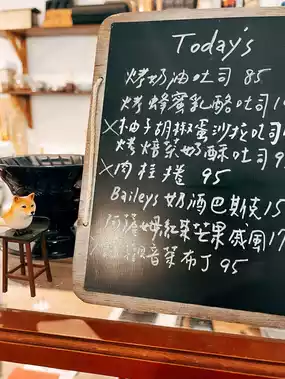 Today's
烤奶油吐司 85
烤蜂蜜乳酪吐司1
X柚子胡椒蛋沙拉吐司
烤焙茶奶酥吐司9
X肉桂捲 95
Baileys 奶酒巴斯克15
阿薩姆紅茶芒果戚風17
觀音茶布丁 95